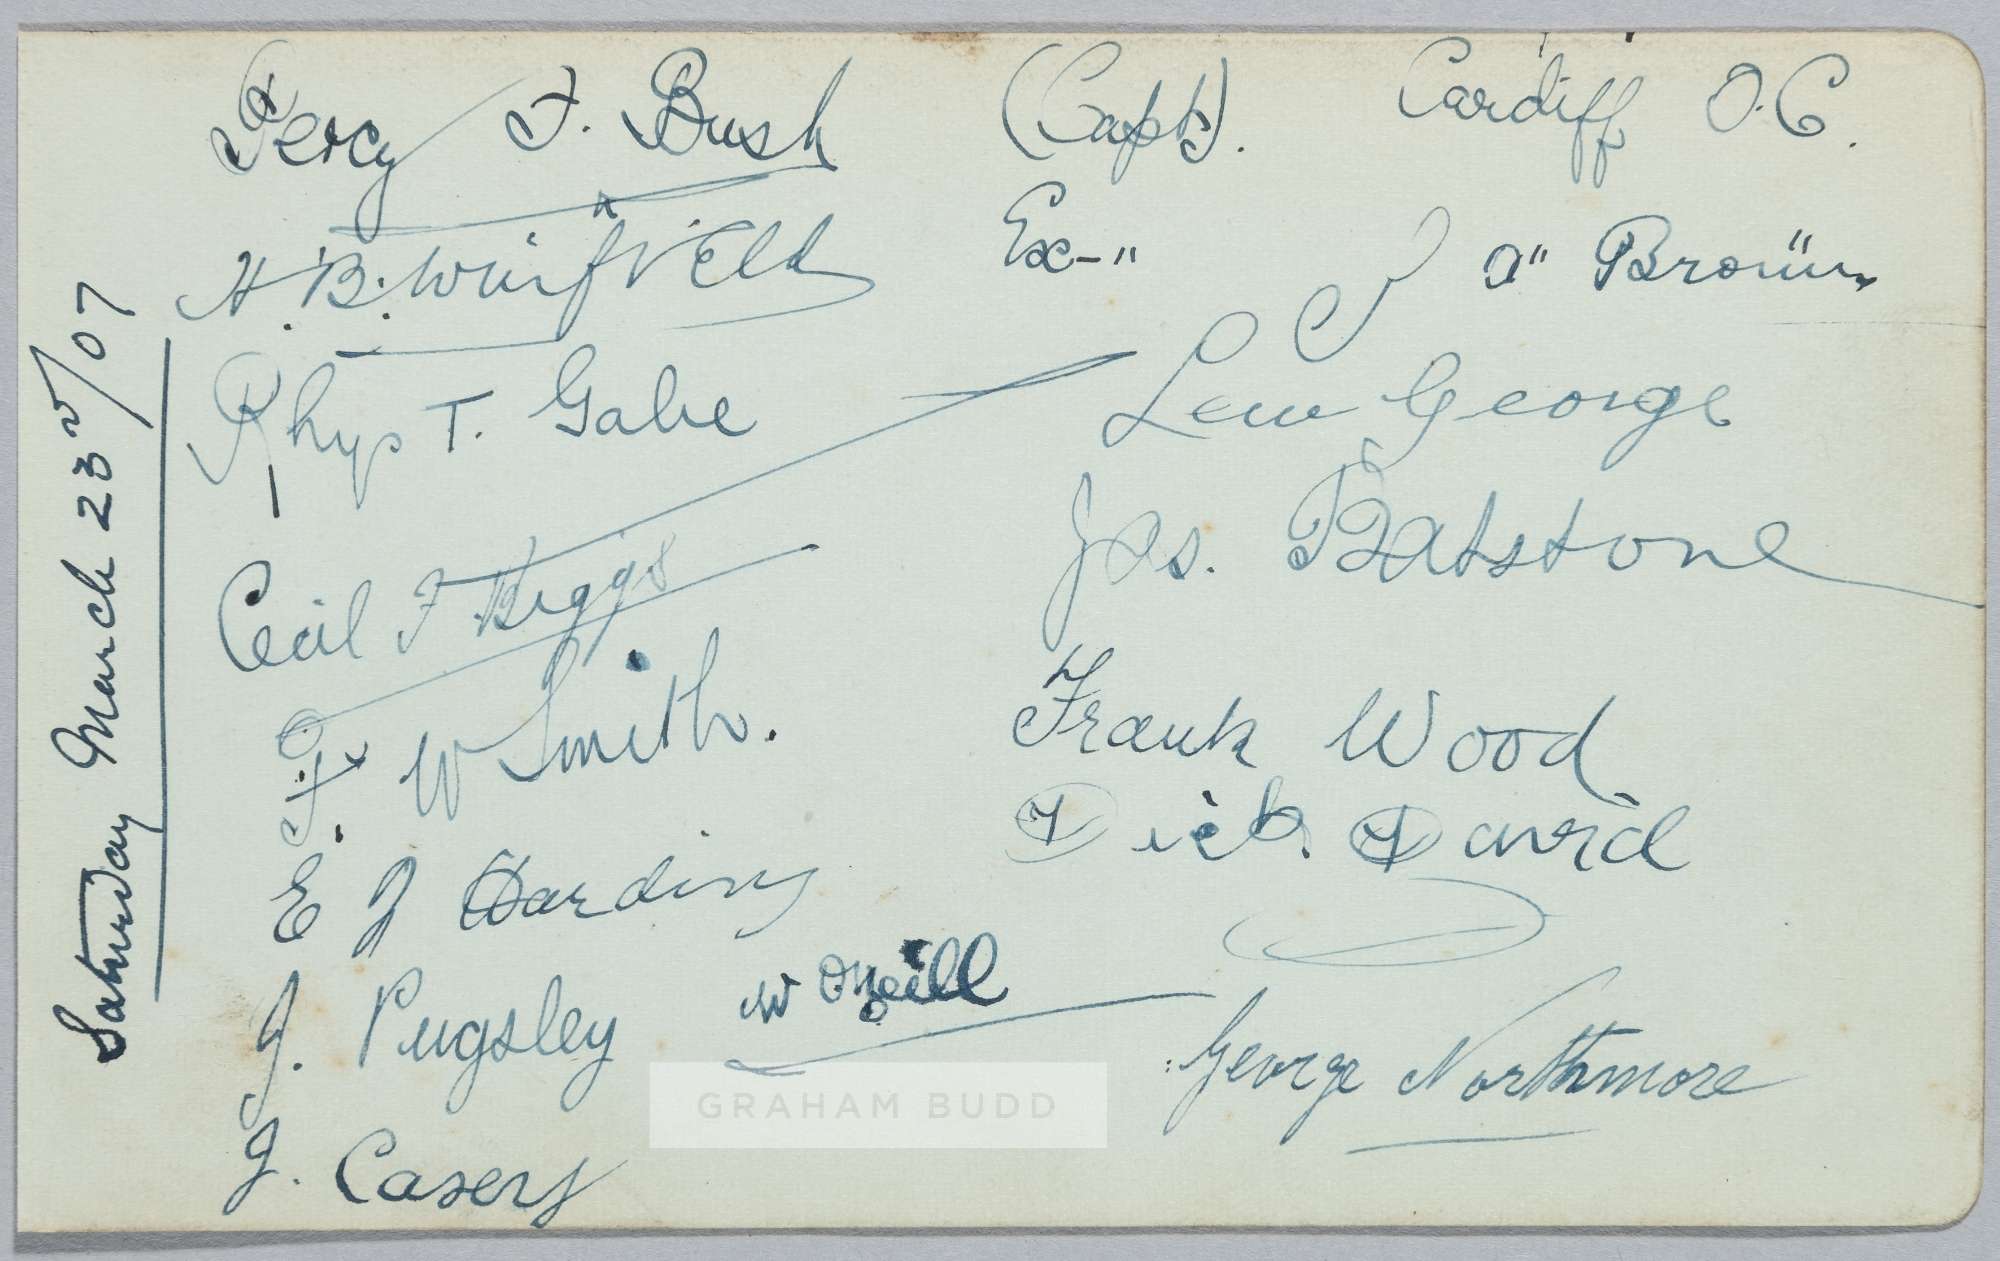 Percy F. Bush (Capt). Cardiff O.C.
H. B. Winfield Ex-"
J A" Brown
Rhys T. Gabe
Lew George
Cecil F Biggs
Jas. Batstone
F W Smith.
Frank Wood
Dick David
E J Harding
W O'Neill
J. Pugsley
George Northmore
J. Casey
Saturday March 23rd/07
GRAHAM BUDD